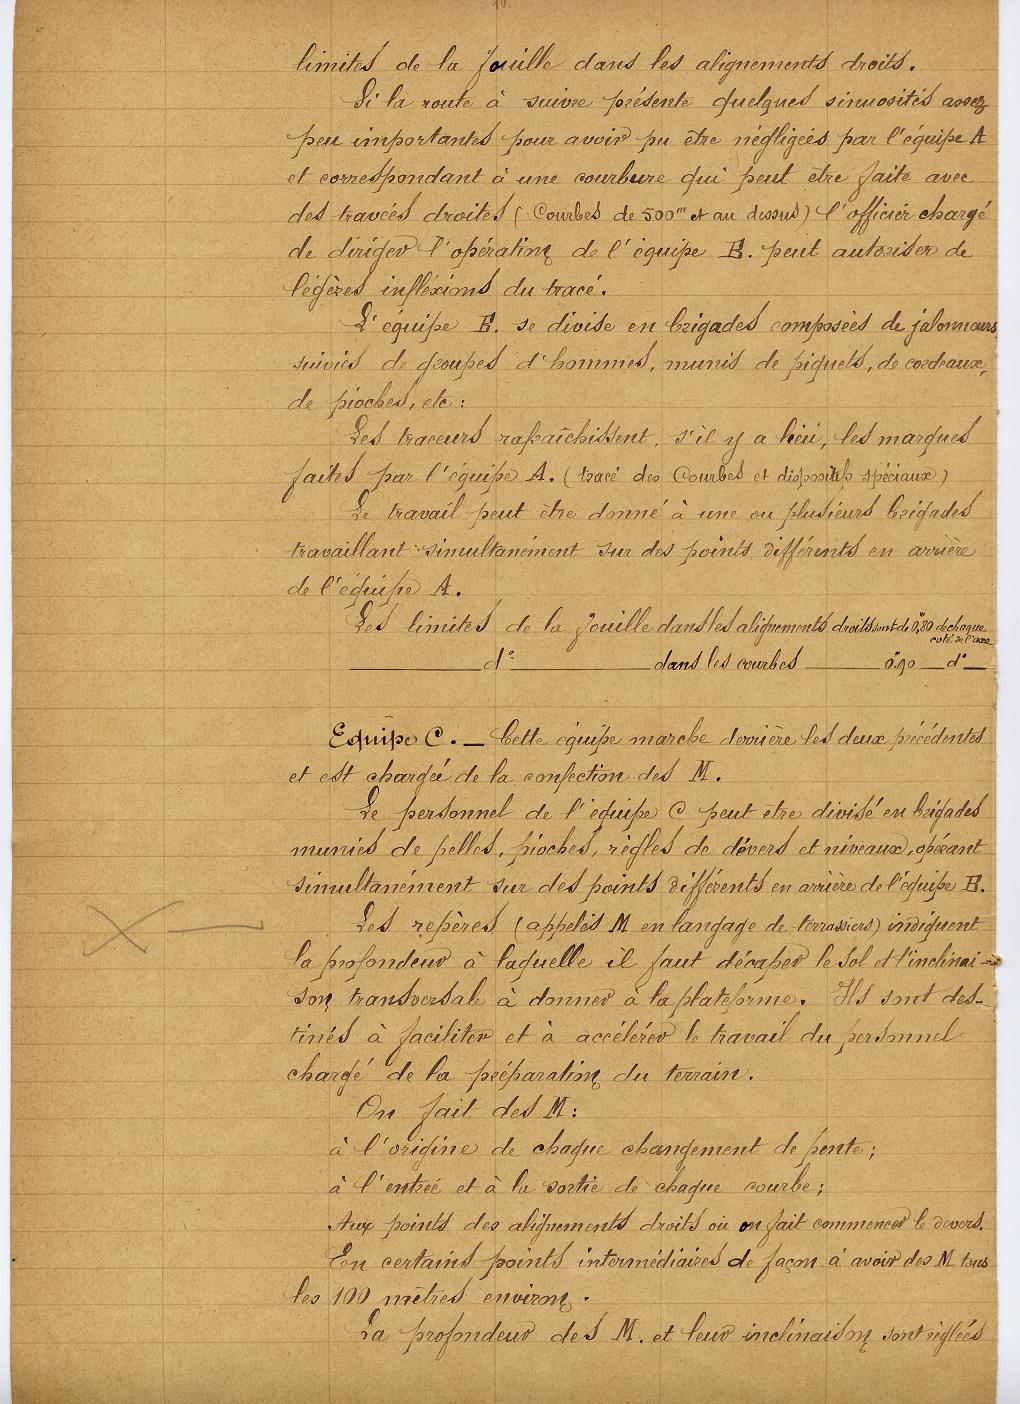 limites de la fouille dans les alignements droits.
Si la route à suivre présente quelques sinuosités assez
peu importantes pour avoir pu être négligées par l'équipe A
et correspondant à une courbure qui peut être faite avec
des travées droites (Courbes de 500m et au dessus) l'officier chargé
de diriger l'opération de l'équipe B. peut autoriser de
légères infléxions du tracé.
L'équipe B. se divise en brigades composées de jalonneurs
suivies de groupes d'hommes, munis de piquets, de cordeaux,
de pioches, etc :
Les traceurs rafraîchissent, s'il y a lieu, les marques
faites par l'équipe A. (tracé des Courbes et dispositifs spéciaux)
Le travail peut être donné à une ou plusieurs brigades
travaillant simultanément sur des points différents en arrière
de l'équipe A.
Les limites de la fouille dans les alignements droits sont de 0m,80 de chaque
coté de l'axe
d° dans les courbes 0m.90 d°
Equipe C. — Cette équipe marche derrière les deux précédentes
et est chargée de la confection des M.
Le personnel de l'équipe C peut être divisé en brigades
munies de pelles, pioches, règles de dévers et niveaux, opérant
simultanément sur des points différents en arrière de l'équipe B.
Les repères (appelés M en langage de terrassiers) indiquent
la profondeur à laquelle il faut décaper le sol et l'inclinai-
son transversale à donner à la plateforme. Ils sont des-
tinés à faciliter et à accélérer le travail du personnel
chargé de la préparation du terrain.
On fait des M :
à l'origine de chaque changement de pente ;
à l'entrée et à la sortie de chaque courbe ;
Aux points des alignements droits où on fait commencer le devers.
En certains points intermédiaires de façon à avoir des M tous
les 100 mètres environ.
La profondeur des M. et leur inclinaison sont réglées